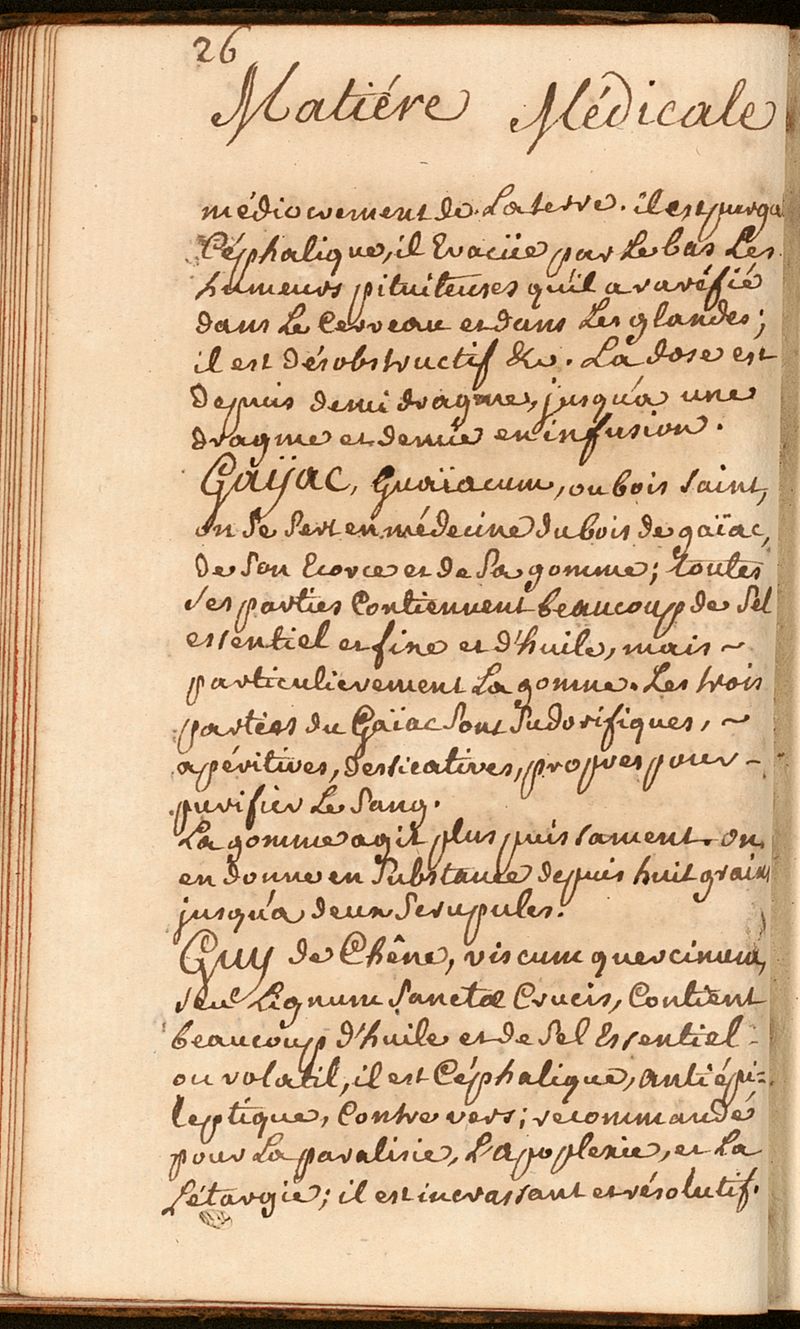 26
Matiére Médicale
médiocrement de La terre. il est purga
Céphalique, il Evacüe par Le bas Les
humeurs pituiteuses qu'il a raréfié
dans Le Cerveau et dans Les glandes;
il est désobstructif &c. La dose est
depuis demi dragme, jusqu'a une
dragme et demie en infusion.
Gaÿac, Guaïacum, ou bois saint,
on se sert en médecine du bois de gaïac,
de son Ecorce et de sa gomme; toutes
ses parties Contiennent beaucoup de sel
essentiel et fixe et d'huile, mais ~
particulierement La gomme. Les trois
parties du Gaïac sont sudorifiques, ~
apéritives, dessicatives, propres pour -
purifier Le sang.
La gomme agit plus puissament. on
en donne en substance depuis huit grains
jusqu'a deux scrupules.
Guy de Chêne, viscum quercinum,
seu Lignum Sanctæ Crucis, Contient
beaucoup d'huile et de sel Essentiel
ou volatil, il est Céphalique, antiépi=
leptique, Contre vers; recommandé
pour La paralisie, L'apoplexie, et La
Létargie; il est incrassant et résolutif.